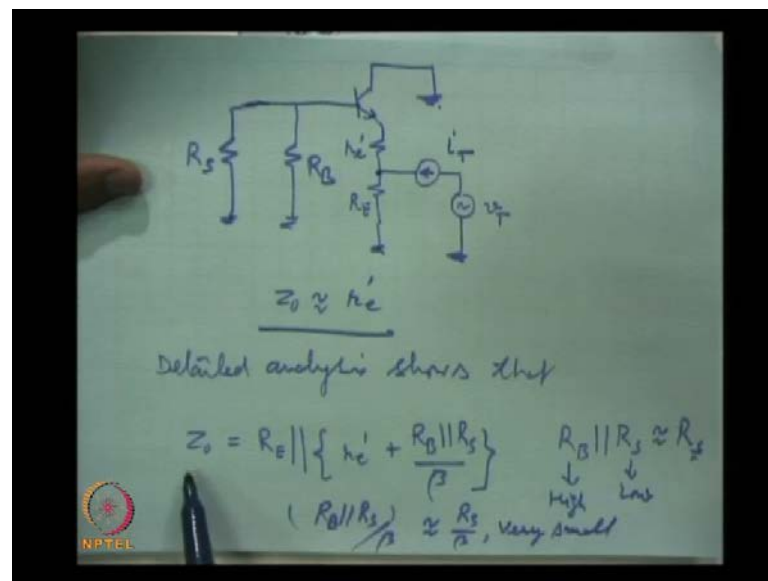 R_S
R_B
r_e'
R_E
i_T
v_T
Z_0 ≈ r_e'
Detailed analysis shows that
Z_0 = R_E || { r_e' + R_B||R_S / β } R_B || R_S ≈ R_S
High Low
(R_B||R_S)/β ≈ R_S/β, very small
NPTEL